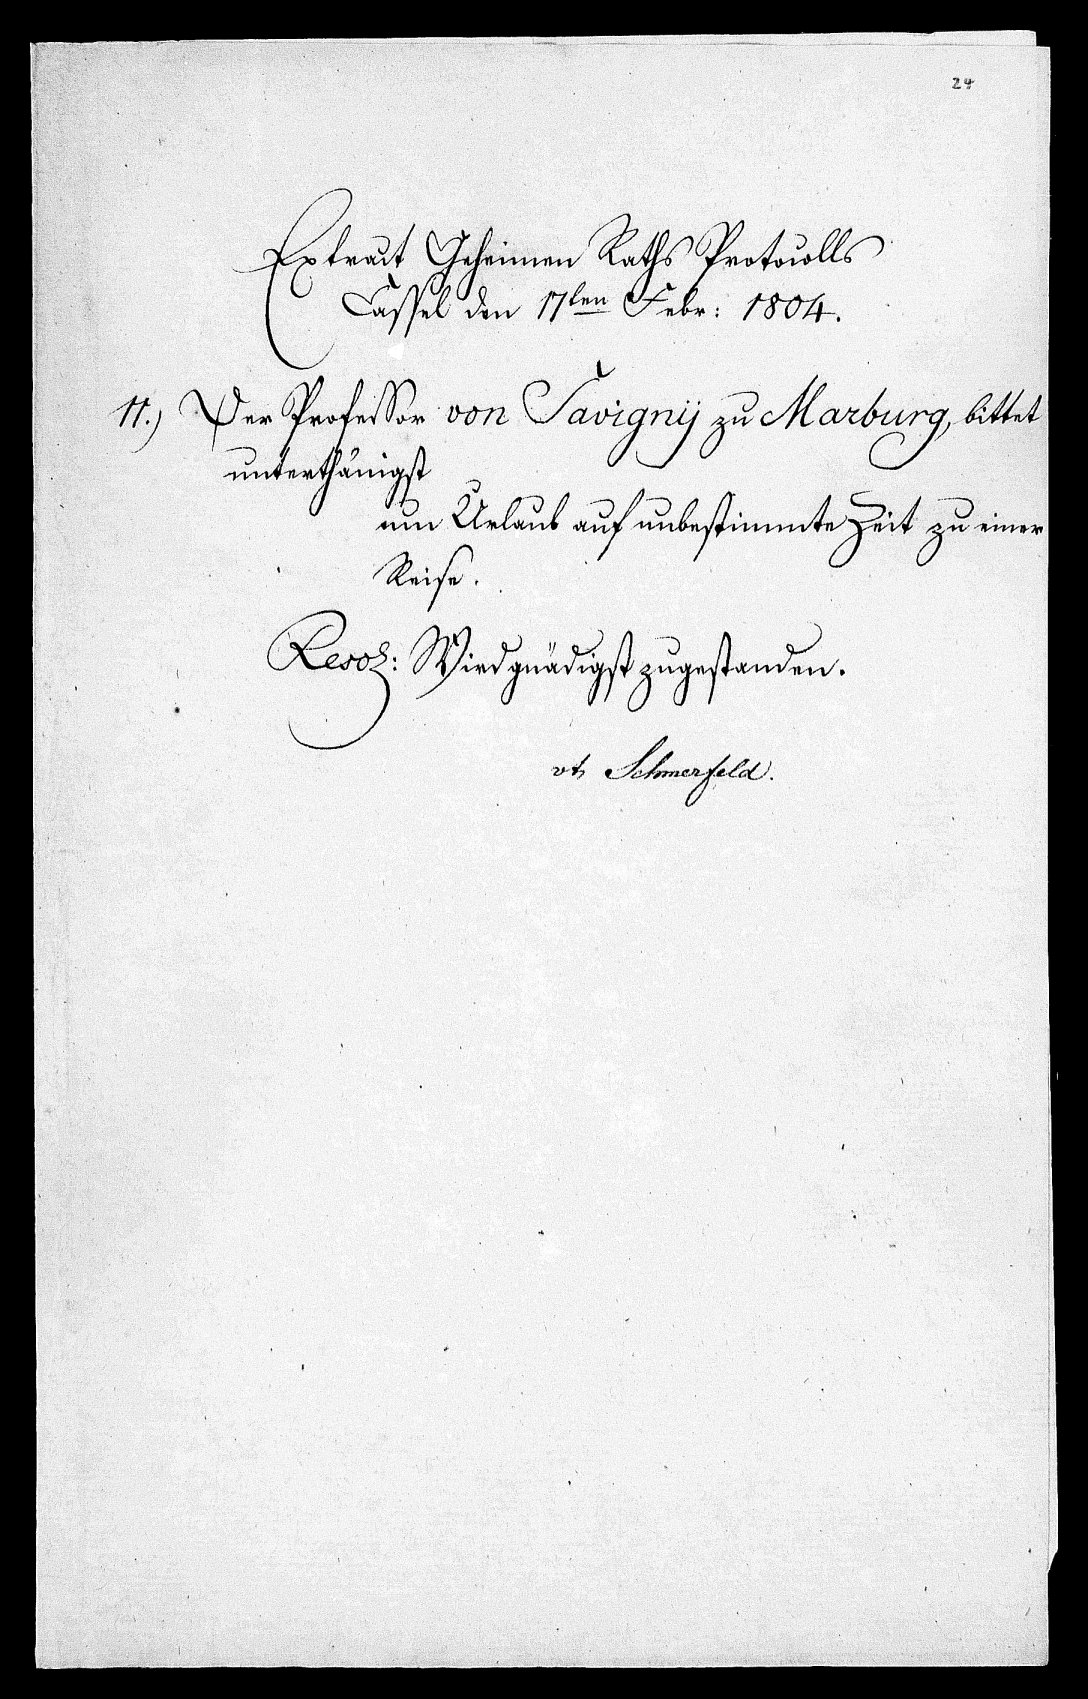 24
Extract Geheimen Raths Protocolls
Cassel den 17ten Febr: 1804.
11.) Der Professor von Savignÿ zu Marburg, bittet
unterthänigst
um Urlaub auf unbestimmte Zeit zu einer
Reise.
Resol: Wird gnädigst zugestanden.
vt Schmerfeld.